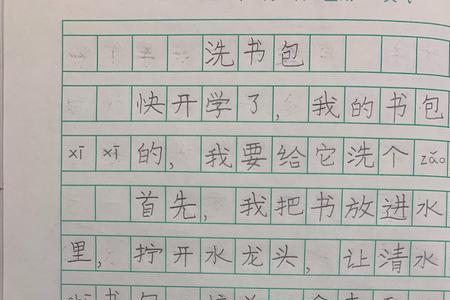 洗书包
快开学了，我的书包
xī xī的，我要给它洗个zǎo
首先，我把书放进水
里，拧开水龙头，让清水
书包